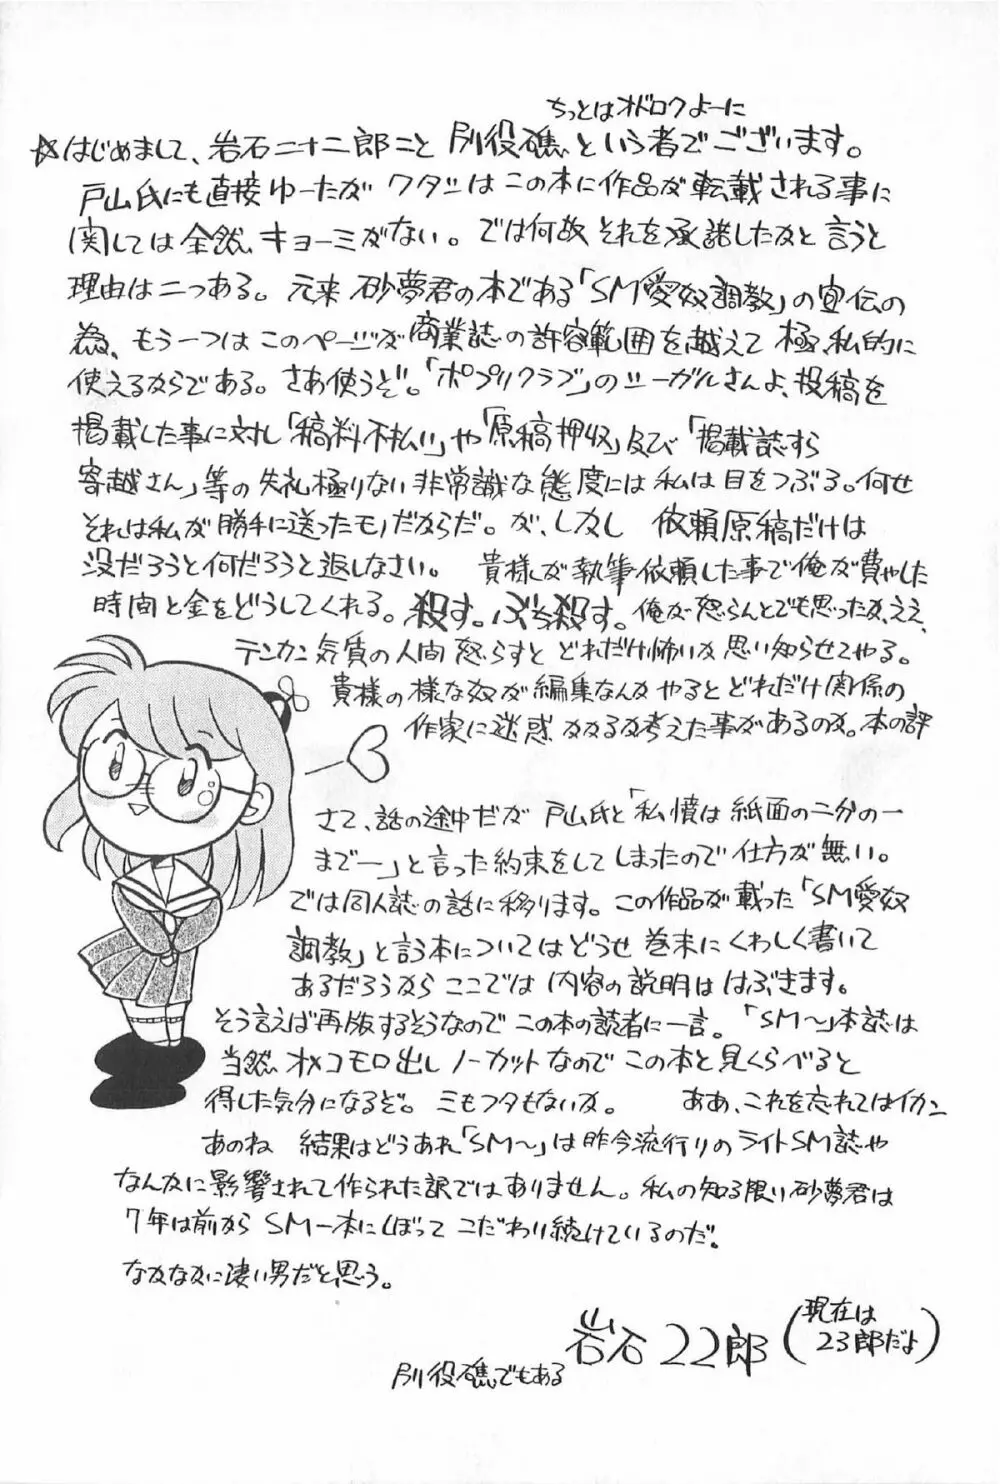 ちっとはオドロクよーに
☆はじめまして、岩石二十二郎こと 別役礁という者でございます。
戸山氏にも直接ゆーたが ワタシはこの本に作品が転載される事に
関しては全然キョーミがない。では何故それを承諾したかと言うと
理由は二つある。元来 砂夢君の本である「SM愛奴調教」の宣伝の
為、もう一つはこのページが商業誌の許容範囲を越えて 極私的に
使えるからである。さあ使うぞ。「ポプリクラブ」のシーガルさんよ、投稿を
掲載した事に対し「稿料不払い」や「原稿押収」及び「掲載誌すら
寄越さん」等の失礼極りない非常識な態度には私は目をつぶる。何せ
それは私が勝手に送ったモノだからだ。が、しかし 依頼原稿だけは
没だろうと何だろうと返しなさい。 貴様が執筆依頼した事で俺が費やした
時間と金をどうしてくれる。殺す。ぶち殺す。俺が怒らんとでも思ったか、ええ、
テンカン気質の人間怒らすと どれだけ怖いか思い知らせてやる。
貴様の様な奴が編集なんかやるとどれだけ関係の
作家に迷惑かかるか考えた事があるのか。本の評
さて、話の途中だが 戸山氏と「私憤は紙面の二分の一
まで―」と言った約束をしてしまったので仕方が無い。
では同人誌の話に移ります。この作品が載った「SM愛奴
調教」と言う本についてはどうせ巻末にくわしく書いて
あるだろうから ここでは内容の説明ははぶきます。
そう言えば再版するそうなのでこの本の読者に一言。「SM〜」本誌は
当然オメコモロ出しノーカットなのでこの本と見くらべると
得した気分になるぞ。ミもフタもないな。 ああ、これを忘れてはイカン
あのね 結果はどうあれ「SM〜」は昨今流行りのライトSM誌や
なんかに影響されて作られた訳ではありません。私の知る限り砂夢君は
7年は前からSM一本にしぼってこだわり続けているのだ。
なかなかに凄い男だと思う。
岩石22郎(現在は
23郎だよ)
別役礁でもある